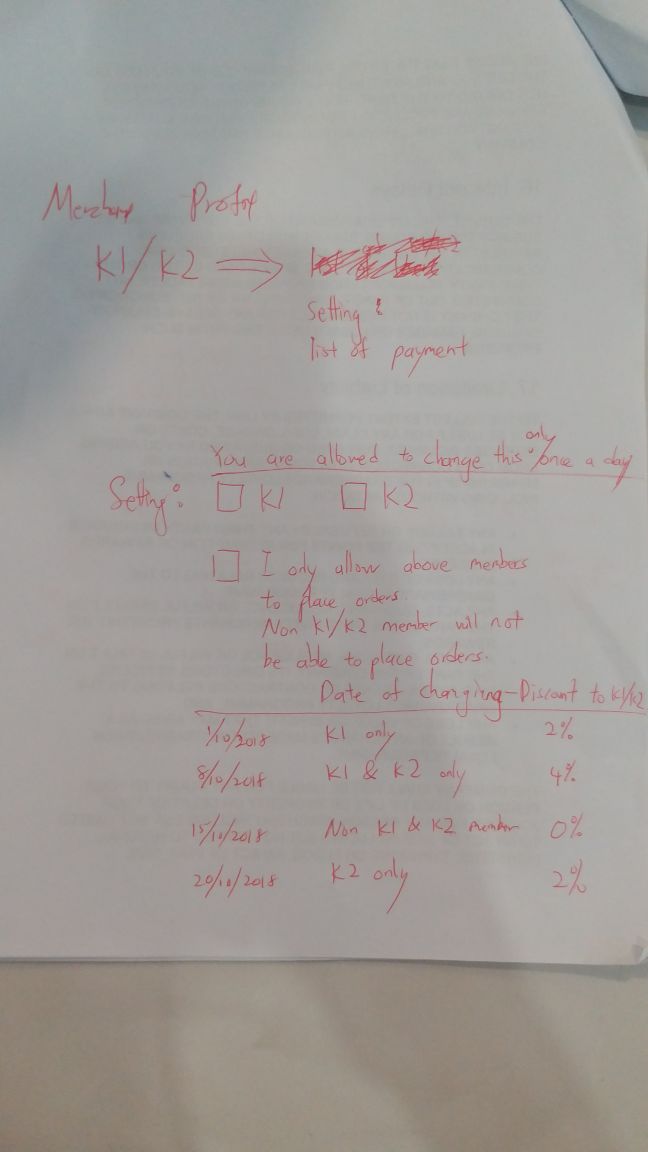 Merchant
K1/K2 ⇒
Setting:
list of payment
You are allowed to change this only once a day
Setting: □ K1 □ K2
□ I only allow above members
to place orders.
Non K1/K2 member will not
be able to place orders.
Date of changing - Discount to K1/K2
1/10/2018 K1 only 2%
8/10/2018 K1 & K2 only 4%
15/10/2018 Non K1 & K2 member 0%
20/10/2018 K2 only 2%